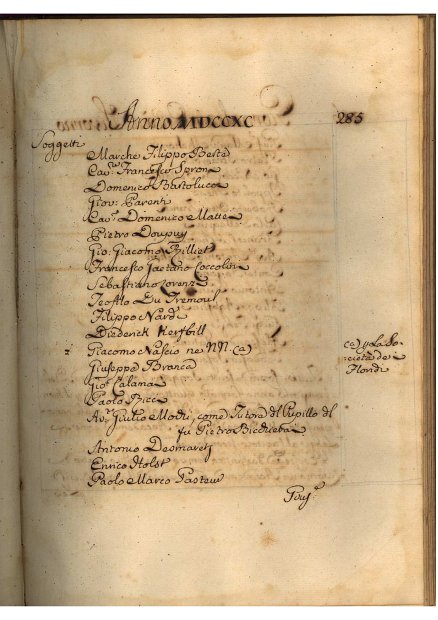 Anno MDCCXC 285
Soggetti
Marche Filippo Berte
Cav.r Francesco Spron
Domenico Bartolucci
Giov: Parenti
Cav.r Domenico Matte
Pietro Doupuy
Gio: Giacomo Billiet
Francesco Gaetano Coccolin
Sebastiano Lorenzi
Teofilo Du Tremoul
Filippo Nardi
Diederick Kerfbill
Giacomo Nascio ne NN (a)
(a) p La So-
cietà de
Floridi
Giuseppe Branca
Gio: Calama
Paolo Ricci
Av.r Giulio Modri, come Tutore del Pupillo del
fu Pietro Bicdueba
Antonio Desmarets
Enrico Holst
Paolo Marco Pasteur